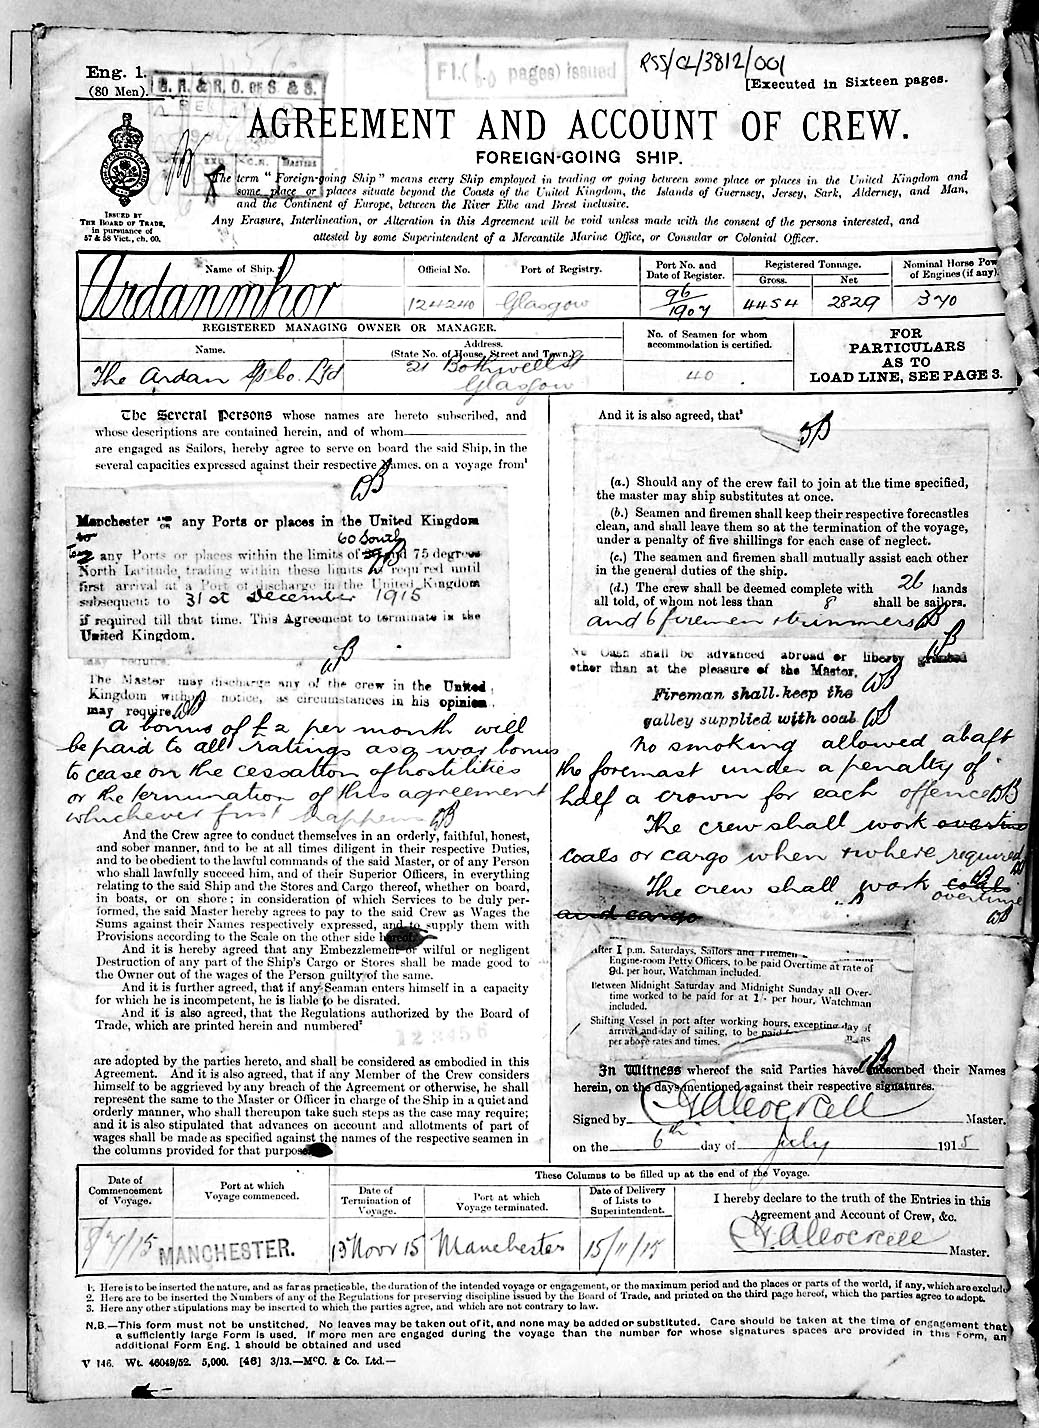 Eng. 1.
(80 Men).
G. R. & R. O. OF S. & S.
F1.( 60 pages) issued
RSS/CL/3812/001
[Executed in Sixteen pages.
AGREEMENT AND ACCOUNT OF CREW.
FOREIGN-GOING SHIP.
ISSUED BY
THE BOARD OF TRADE,
in pursuance of
57 & 58 Vict., ch. 60.
The term "Foreign-going Ship" means every Ship employed in trading or going between some place or places in the United Kingdom and
some place or places situate beyond the Coasts of the United Kingdom, the Islands of Guernsey, Jersey, Sark, Alderney, and Man,
and the Continent of Europe, between the River Elbe and Brest inclusive.
Any Erasure, Interlineation, or Alteration in this Agreement will be void unless made with the consent of the persons interested, and
attested by some Superintendent of a Mercantile Marine Office, or Consular or Colonial Officer.
Name of Ship. Official No. Port of Registry. Port No. and Date of Register. Registered Tonnage. Gross. Net Nominal Horse Pow of Engines (if any).
Ardanmhor 124240 Glasgow 96/1907 4454 2829 370
REGISTERED MANAGING OWNER OR MANAGER.
Name. Address. (State No. of House, Street and Town.) No. of Seamen for whom accommodation is certified.
The Ardan SS Co. Ltd 21 Bothwell St Glasgow 40
FOR
PARTICULARS
AS TO
LOAD LINE, SEE PAGE 3.
The Several Persons whose names are hereto subscribed, and
whose descriptions are contained herein, and of whom
are engaged as Sailors, hereby agree to serve on board the said Ship, in the
several capacities expressed against their respective Names, on a voyage from¹
WB
Manchester AND OR any Ports or places in the United Kingdom
to 60 South
any Ports or places within the limits of and 75 degrees
North Latitude, trading within these limits as required until
first arrival at a Port of discharge in the United Kingdom
subsequent to 31st December 1915
if required till that time. This Agreement to terminate in the
United Kingdom.
WB
may require.
The Master may discharge any of the crew in the United
Kingdom with notice, as circumstances in his opinion
may require WB
A bonus of £2 per month will
be paid to all ratings as a war bonus
to cease on the cessation of hostilities
or the termination of this agreement
whichever first happens WB
And the Crew agree to conduct themselves in an orderly, faithful, honest,
and sober manner, and to be at all times diligent in their respective Duties,
and to be obedient to the lawful commands of the said Master, or of any Person
who shall lawfully succeed him, and of their Superior Officers, in everything
relating to the said Ship and the Stores and Cargo thereof, whether on board,
in boats, or on shore; in consideration of which Services to be duly per-
formed, the said Master hereby agrees to pay to the said Crew as Wages the
Sums against their Names respectively expressed, and to supply them with
Provisions according to the Scale on the other side hereof.
And it is hereby agreed that any Embezzlement or wilful or negligent
Destruction of any part of the Ship's Cargo or Stores shall be made good to
the Owner out of the wages of the Person guilty of the same.
And it is further agreed, that if any Seaman enters himself in a capacity
for which he is incompetent, he is liable to be disrated.
And it is also agreed, that the Regulations authorized by the Board of
Trade, which are printed herein and numbered²
1 2 3 4 5 6
are adopted by the parties hereto, and shall be considered as embodied in this
Agreement. And it is also agreed, that if any Member of the Crew considers
himself to be aggrieved by any breach of the Agreement or otherwise, he shall
represent the same to the Master or Officer in charge of the Ship in a quiet and
orderly manner, who shall thereupon take such steps as the case may require;
and it is also stipulated that advances on account and allotments of part of
wages shall be made as specified against the names of the respective seamen in
the columns provided for that purpose
And it is also agreed, that³
WB
(a.) Should any of the crew fail to join at the time specified,
the master may ship substitutes at once.
(b.) Seamen and firemen shall keep their respective forecastles
clean, and shall leave them so at the termination of the voyage,
under a penalty of five shillings for each case of neglect.
(c.) The seamen and firemen shall mutually assist each other
in the general duties of the ship.
(d.) The crew shall be deemed complete with 26 hands
all told, of whom not less than 8 shall be sailors.
and 6 firemen & trimmers WB
No Cash shall be advanced abroad or liberty granted WB
other than at the pleasure of the Master.
Fireman shall keep the WB
galley supplied with coal WB
No smoking allowed abaft
the foremast under a penalty of
half a crown for each offence WB
The crew shall work overtime
coals or cargo when & where required WB
The crew shall work coals overtime WB
and cargo WB
After 1 p.m. Saturdays, Sailors and Firemen
Engine-room Petty Officers, to be paid Overtime at rate of
9d. per hour, Watchman included.
Between Midnight Saturday and Midnight Sunday all Over-
time worked to be paid for at 1/- per hour, Watchman
included.
Shifting Vessel in port after working hours, excepting day of
arrival and day of sailing, to be paid as
per above rates and times.
WB
In Witness whereof the said Parties have subscribed their Names
herein, on the days mentioned against their respective signatures.
Signed by Master.
on the 6th day of July 1915
Date of Commencement of Voyage. Port at which Voyage commenced. These Columns to be filled up at the end of the Voyage.
Date of Termination of Voyage. Port at which Voyage terminated. Date of Delivery of Lists to Superintendent.
I hereby declare to the truth of the Entries in this
Agreement and Account of Crew, &c.
Master.
8/7/15 MANCHESTER. 13 Novr 15 Manchester 15/11/15
1. Here is to be inserted the nature, and as far as practicable, the duration of the intended voyage or engagement, or the maximum period and the places or parts of the world, if any, which are exclude
2. Here are to be inserted the Numbers of any of the Regulations for preserving discipline issued by the Board of Trade, and printed on the third page hereof, which the parties agree to adopt.
3. Here any other stipulations may be inserted to which the parties agree, and which are not contrary to law.
N.B.—This form must not be unstitched. No leaves may be taken out of it, and none may be added or substituted. Care should be taken at the time of engagement that
a sufficiently large Form is used. If more men are engaged during the voyage than the number for whose signatures spaces are provided in this Form, an
additional Form Eng. 1 should be obtained and used
V 146. Wt. 46049/52. 5,000. [46] 3/13.—McC. & Co. Ltd.—